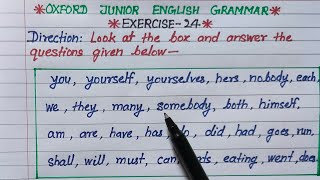 *OXFORD JUNIOR ENGLISH GRAMMAR*
*EXERCISE-24*
Direction: Look at the box and answer the
questions given below—
you, yourself, yourselves, hers, nobody, each,
we, they, many, somebody, both, himself,
am, are, have, has, do, did, had, goes, run,
shall, will, must, can, eating, went, does.